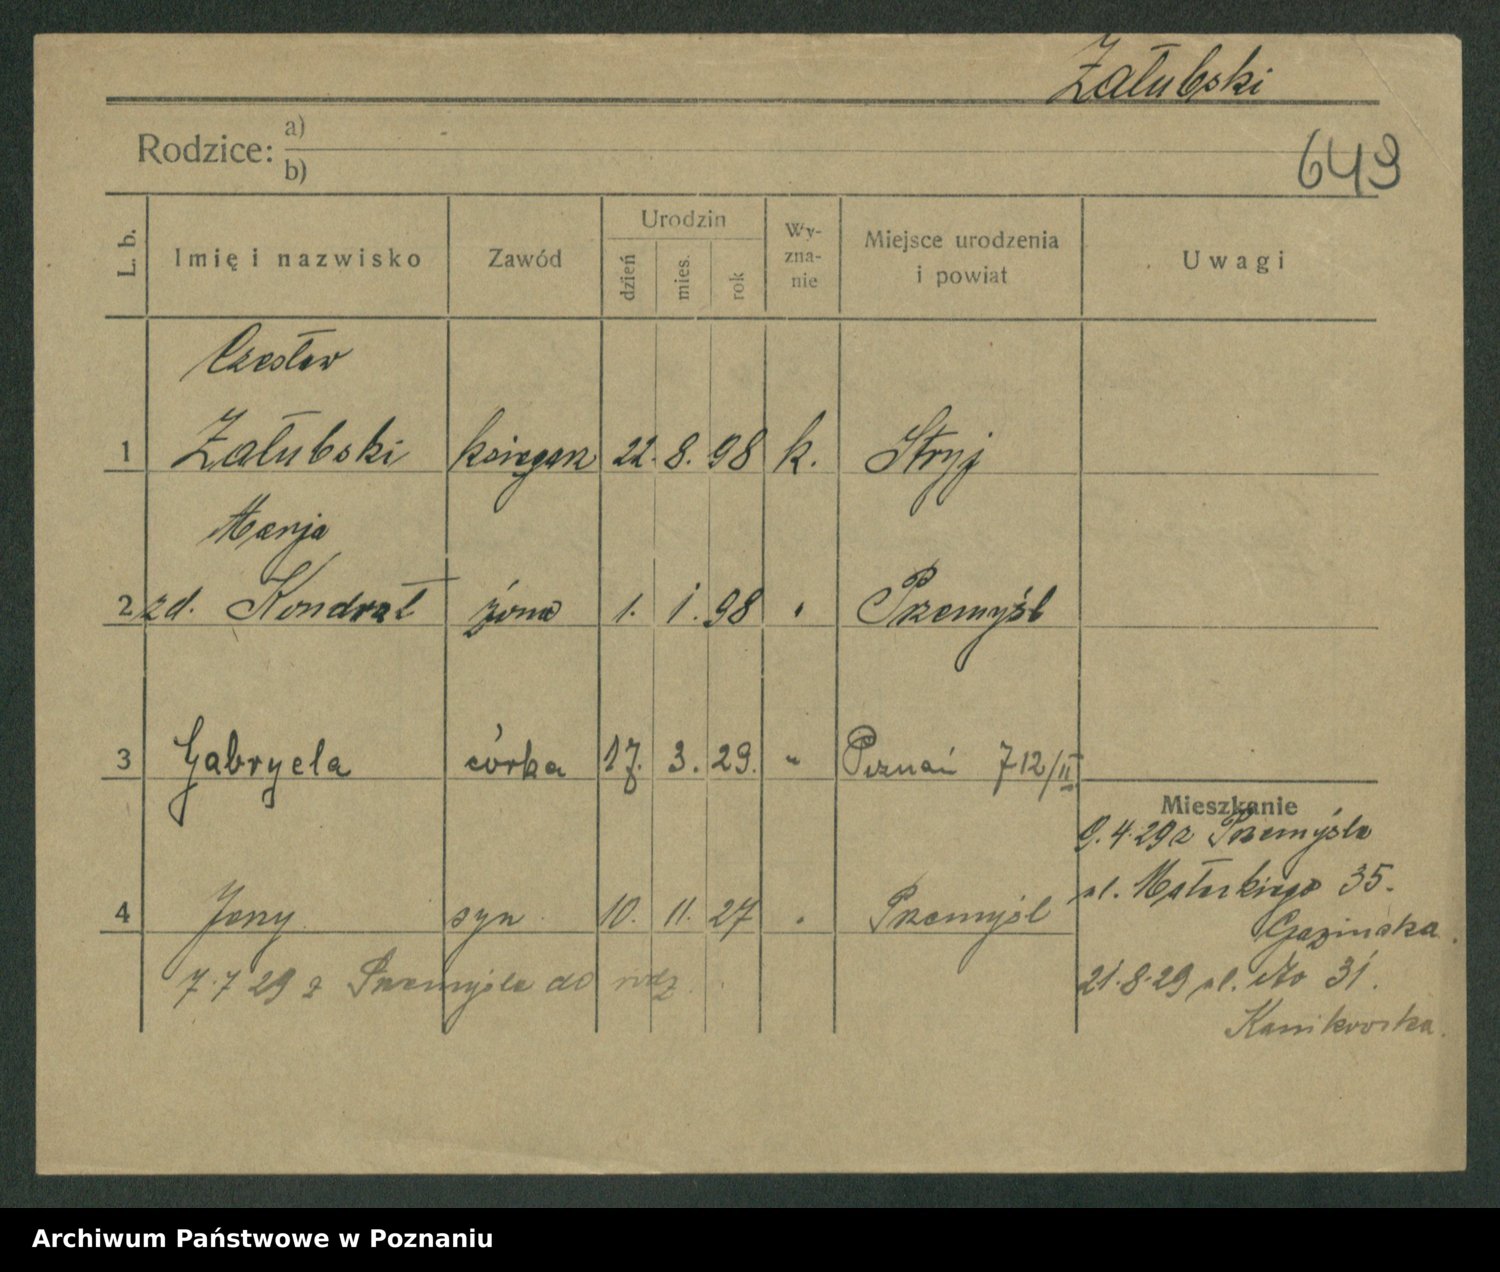 Załubski
Rodzice: a)
b)
649
L. b. Imię i nazwisko Zawód Urodzin dzień mies. rok Wy-zna-nie Miejsce urodzenia i powiat Uwagi
Czesław
1 Załubski księgarz 22. 8. 98 k. Stryj
Marja
2 zd. Kondrat żona 1. 1. 98 " Przemyśl
3 Gabryela córka 17. 3. 29. " Poznań 712/II
Mieszkanie
9.4.29 z Przemyśla
ul. Małeckiego 35.
4 Jerzy syn 10. 11. 27 " Przemyśl
7.7 29 z Przemyśla do rodz.
21.8.29 ul. 31.
Archiwum Państwowe w Poznaniu